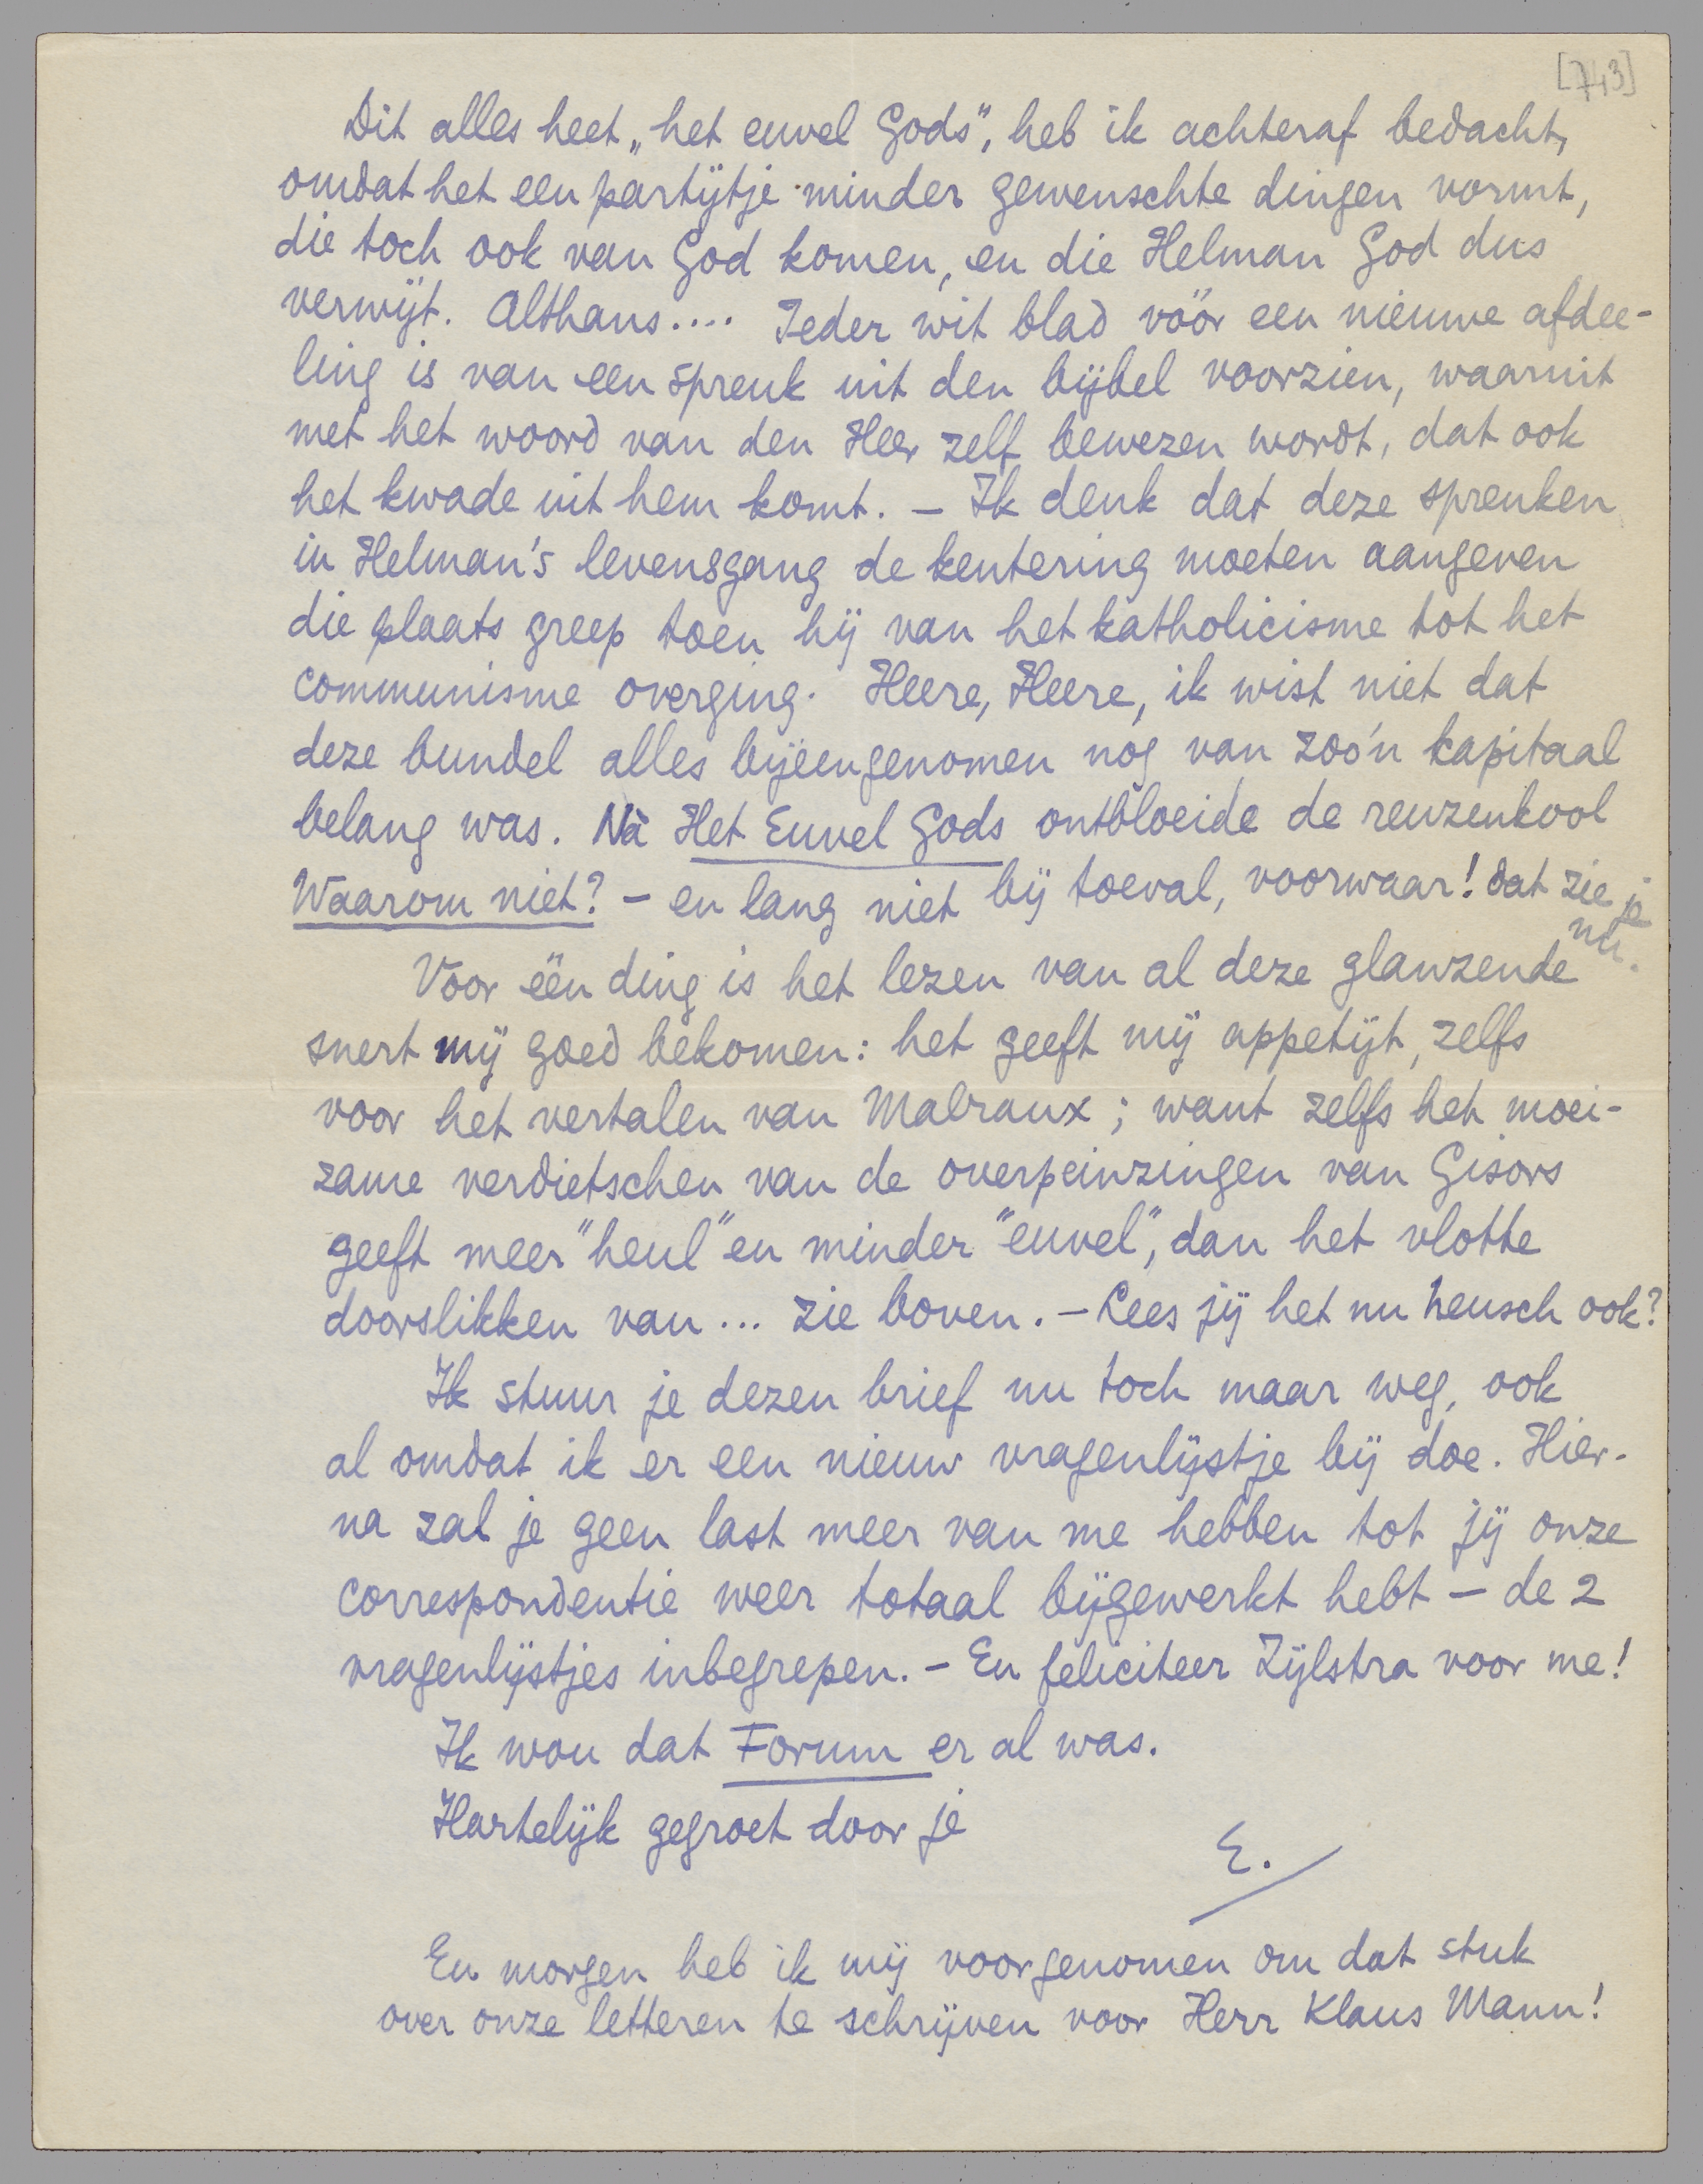 [743]
Dit alles heet „het euvel Gods", heb ik achteraf bedacht,
omdat het een partijtje minder gewenschte dingen vormt,
die toch ook van God komen, en die Helman God dus
verwijt. Althans.... Ieder wit blad vóór een nieuwe afdee-
ling is van een spreuk uit den bijbel voorzien, waaruit
met het woord van den Heer zelf bewezen wordt, dat ook
het kwade uit hem komt. – Ik denk dat deze spreuken
in Helman's levensgang de kentering moeten aangeven
die plaats greep toen hij van het katholicisme tot het
communisme overging. Heere, Heere, ik wist niet dat
deze bundel alles bijeengenomen nog van zoo'n kapitaal
belang was. Nà Het Euvel Gods ontbloeide de reuzenkool
Waarom niet? – en lang niet bij toeval, voorwaar! dat zie je
nu.
Voor één ding is het lezen van al deze glanzende
snert mij goed bekomen: het geeft mij appetijt, zelfs
voor het vertalen van Malraux; want zelfs het moei-
zame verdietschen van de overpeinzingen van Gisors
geeft meer "heul" en minder "euvel", dan het vlotte
doorslikken van... zie boven. – Lees jij het nu heusch ook?
Ik stuur je dezen brief nu toch maar weg, ook
al omdat ik er een nieuw vragenlijstje bij doe. Hier-
na zal je geen last meer van me hebben tot jij onze
correspondentie weer totaal bijgewerkt hebt – de 2
vragenlijstjes inbegrepen. – En feliciteer Zijlstra voor me!
Ik wou dat Forum er al was.
Hartelijk gegroet door je
E.
En morgen heb ik mij voorgenomen om dat stuk
over onze letteren te schrijven voor Herr Klaus Mann!